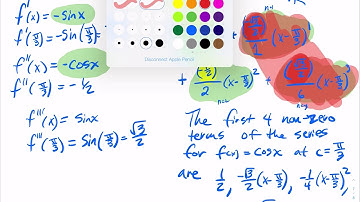 f'(x) = -sinx
f'(π/3) = -Sin(π/3) =
f''(x) = -cosx
f''(π/3) = -1/2
f'''(x) = Sinx
f'''(π/3) = Sin(π/3) = √3/2
Disconnect Apple Pencil
(x-π/3)
n=1
+ (-1/2)/2 (x-π/3)² + (√3/2)/6 (x-π/3)³
n=2
The first 4 non-zero
terms of the series
for f(x) = cosx at c = π/3
are 1/2, -√3/2 (x-π/3), -1/4 (x-π/3)²,